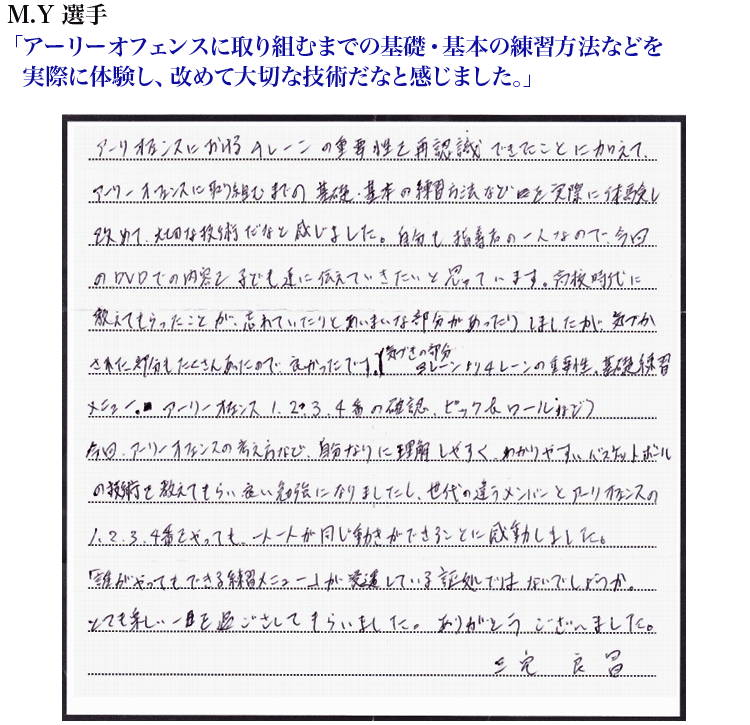 M.Y 選手
「アーリーオフェンスに取り組むまでの基礎・基本の練習方法などを
実際に体験し、改めて大切な技術だなと感じました。」
アーリオフェンスにおける4レーンの重要性を再認識できたことに加えて、
アーリーオフェンスに取り組むまでの基礎・基本の練習方法などを実際に体験し
改めて、大切な技術だなと感じました。自分も、指導者の一人なので、今回
のDVDでの内容を子ども達に伝えていきたいと思っています。高校時代に
教えてもらったことが、忘れていたりとあいまいな部分があったりしましたが、気づか
された部分もたくさんあったので、良かったです。(気づきの部分
3レーンより4レーンの重要性、基礎練習
メニュー、アーリーオフェンス1.2.3.4番の確認、ピック&ロールなど)
今回、アーリーオフェンスの考え方など、自分なりに理解しやすく、わかりやすいバスケットボール
の技術を教えてもらい良い勉強になりましたし、世代の違うメンバーとアーリオフェンスの
1.2.3.4番をやっても、一人一人が同じ動きができることに感動しました。
「誰がやってもできる練習メニュー」が浸透している証拠ではないでしょうか。
とても楽しい一日を過ごさしてもらいました。ありがとうございました。
三宅 良昌